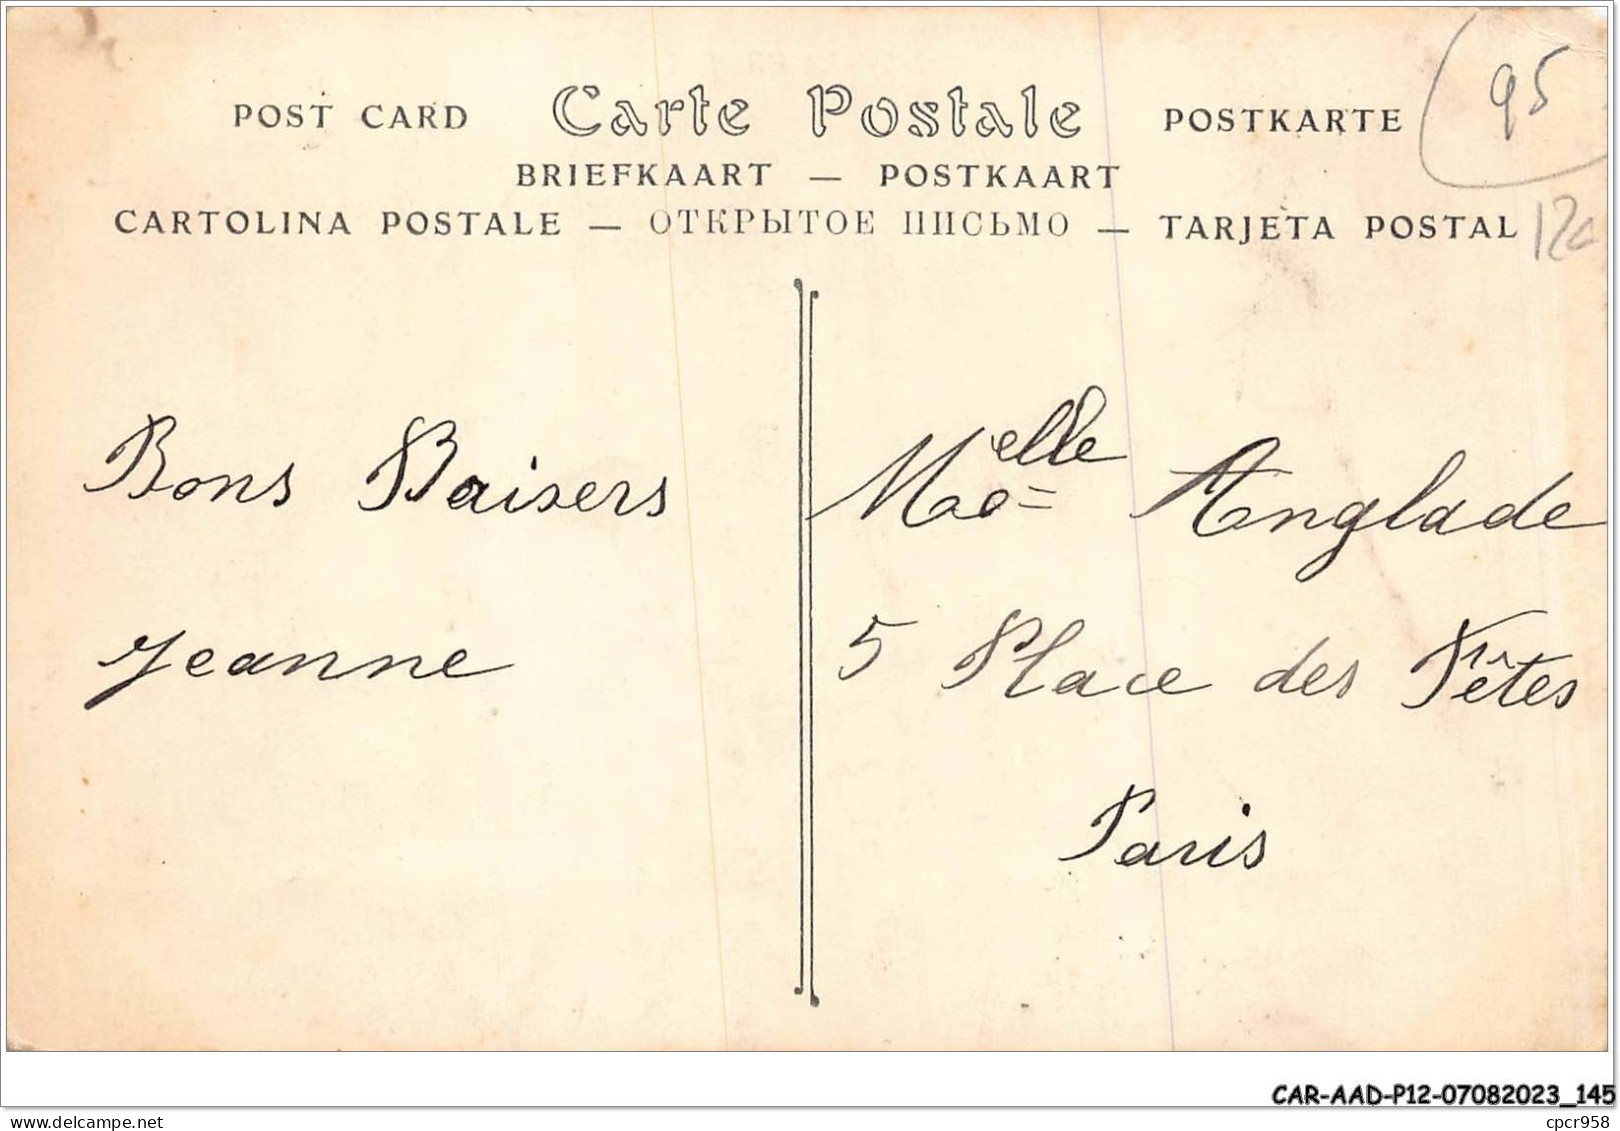 POST CARD Carte Postale POSTKARTE
95
BRIEFKAART — POSTKAART
CARTOLINA POSTALE — ОТКРЫТОЕ ПИСЬМО — TARJETA POSTAL
Bons Baisers
Jeanne
Melle Anglade
5 Place des Fêtes
Paris
CAR-AAD-P12-07082023_145
www.delcampe.net
cpcr958